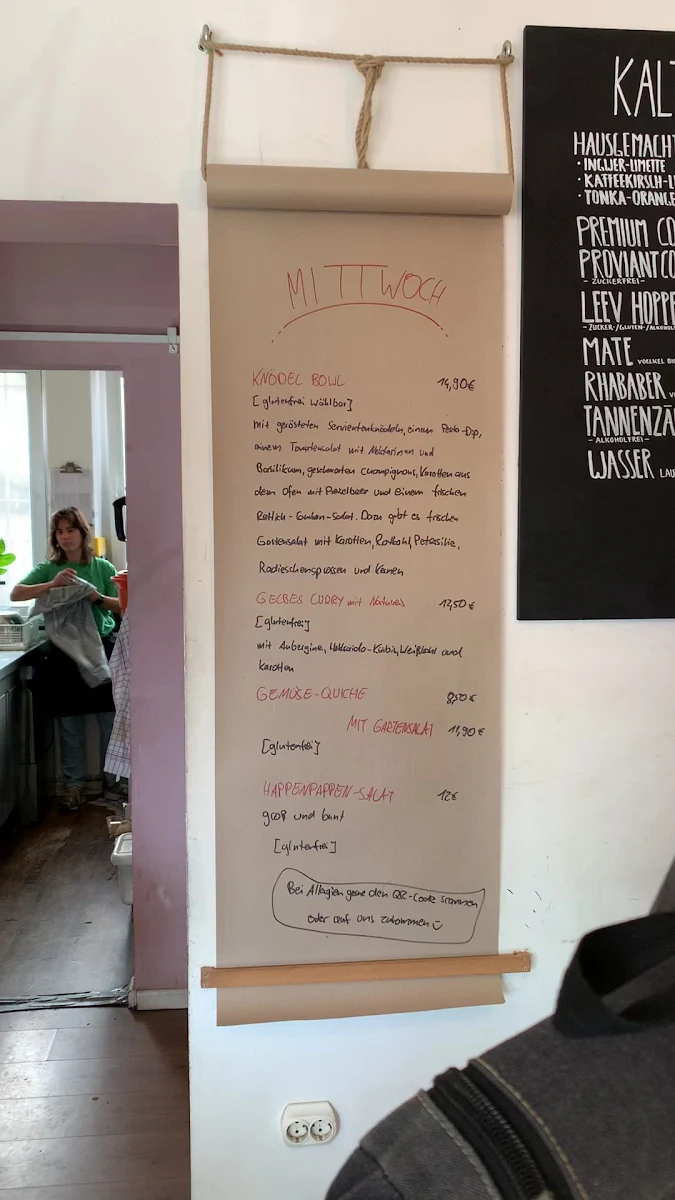 MITTWOCH
KNÖDEL BOWL 14,90€
[glutenfrei wählbar]
mit gerösteten Serviettenknödeln, einem Pesto-Dip,
einem Tomatensalat mit Nektarinen und
Basilikum, geschmorten Champignons, Karotten aus
dem Ofen mit Preiselbeer und einem frischen
Rettich-Gurken-Salat. Dazu gibt es frischen
Gartensalat mit Karotten, Rotkohl, Petersilie,
Radieschensprossen und Kernen
GELBES CURRY mit Naturreis 12,50€
[glutenfrei]
mit Aubergine, Hokkaido-Kürbis, Weißkohl und
Karotten
GEMÜSE-QUICHE 8,50€
MIT GARTENSALAT 11,90€
[glutenfrei]
HAPPENPAPPEN-SALAT 12€
groß und bunt
[glutenfrei]
Bei Allergien gerne den QR-Code scannen
oder auf uns zukommen
KAL
HAUSGEMACHT
• INGWER-LIMETTE
• KAFFEEKIRSCH-L
• TONKA-ORANGE
PREMIUM CO
PROVIANT CO
- ZUCKERFREI -
LEEV HOPPE
- ZUCKER-/GLUTEN-/ALKOHOL
MATE VOELKEL BI
RHABARBER
TANNENZÄ
- ALKOHOLFREI -
WASSER